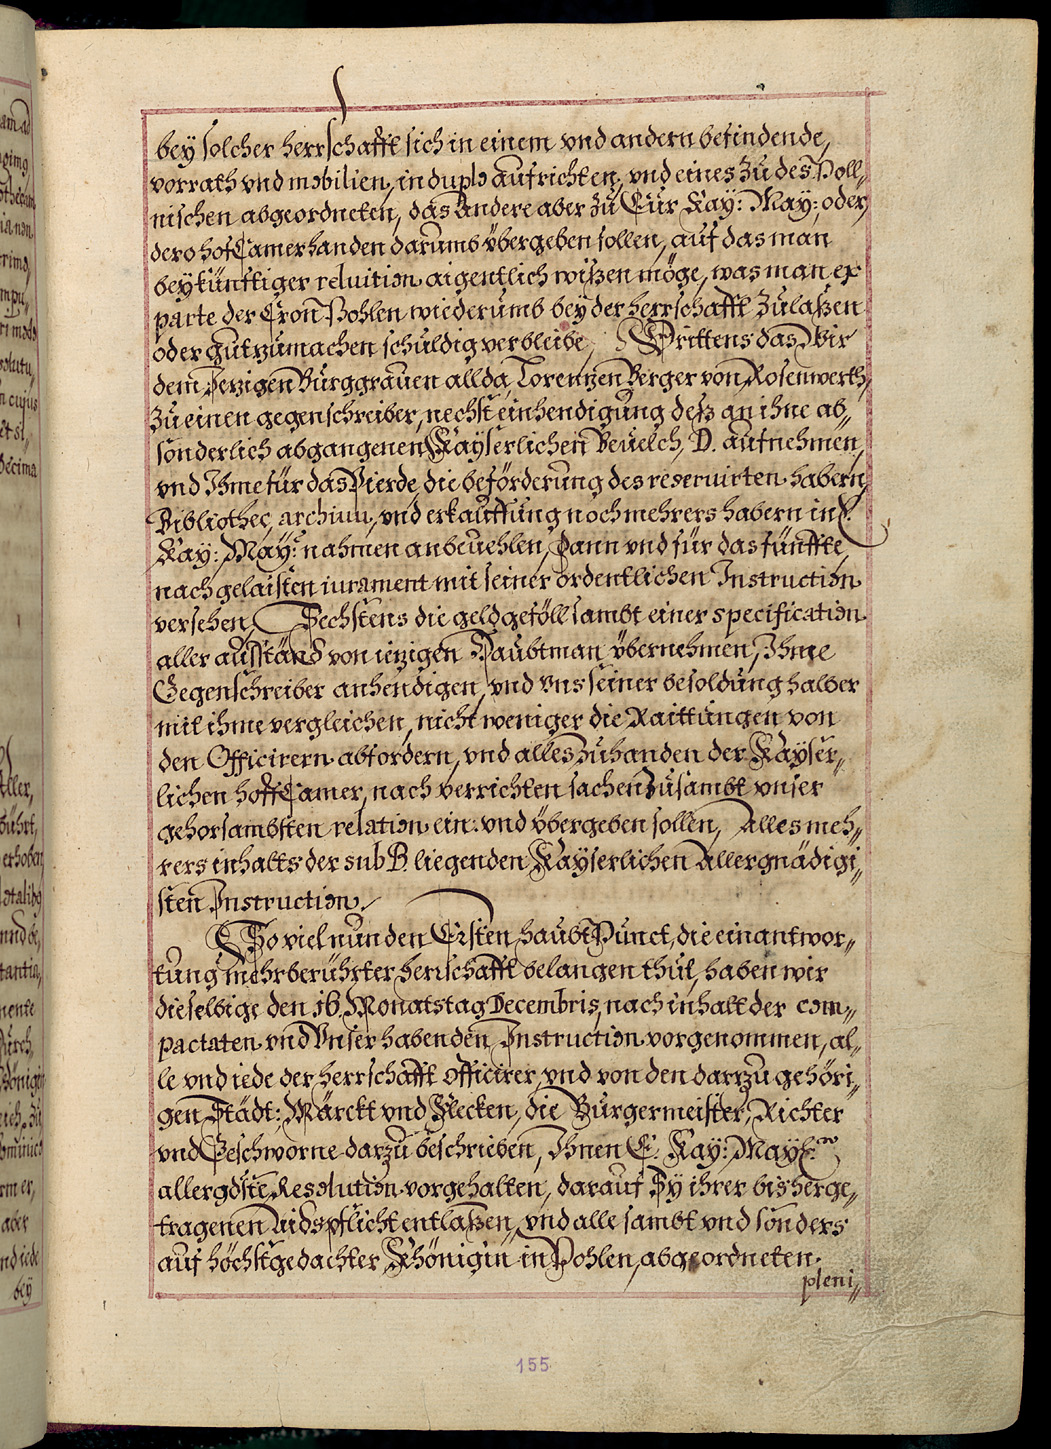 bey solcher herrschafft sich in einem vnd andern befindende,
vorrath vnd mobilien, in duplo aufrichten, vnd eines zu des Poll„
nischen abgeordneten, das Andere aber zu Eür Kay: May: oder,
dero hofCamer handen darumb vbergeben sollen, auf das man
bey künfftiger reluition aigentlich wißen möge, was man ex
parte der Cron Pohlen wiederumb bey der herrschafft zulaßen
oder gutzumachen schuldig verbleibe, Drittens das Wir
dem Jezigen Burggrauen allda, Lorentzen Berger von Rosenwerth,
zu einen gegenschreiber, nechst einhendigung deß an ihne ab„
sonderlich abgangenen Kayserlichen Beuelch, D. aufnehmen,
vnd Ihme für das Vierde, die beförderung des reseruirten habern,
Bibliothec, archium, vnd erkauffung noch mehrers habern in E.
Kay: May: nahmen anbeuehlen, Dann vnd für das fünffte,
nach gelaisten iurament mit seiner ordentlichen Instruction
versehen, Sechstens die geldgeföll sambt einer specification
aller außständ von iezigen Haubtman vbernehmen, Ihme
Gegenschreiber anhendigen, vnd vns seiner besoldung halber
mit ihme vergleichen, nicht weniger die Raittungen von
den Officirern abfordern, vnd alles zuhanden der Kayser„
lichen hoffCamer, nach verrichten sachen zusambt vnser
gehorsambsten relation ein: vnd vbergeben sollen, Alles meh„
rers inhalts der sub B. liegenden Kayserlichen Allergnädigi„
sten Instruction.
So viel nun den Ersten haubt Punct, die einantwor„
tung mehrberührter herrschafft belangen thut, haben wir
dieselbige den 16. Monatstag Decembris, nach inhalt der com„
pactaten vnd Vnser habenden Instruction vorgenommen, al„
le vnd iede der herrschafft officirer, vnd von den darzu gehöri„
gen Städt: Märckt vnd Flecken, die Burgermeister, Richter
vnd Geschworne darzu beschrieben, Ihnen E. Kay: May:
allergdste Resolution vorgehalten, darauf Sy ihrer bishero ge„
tragenen Aidspflicht entlaßen, vnd alle sambt vnd sonders
auf höchstgedachter Khönigin in Pohlen, abgeordneten
pleni„
155